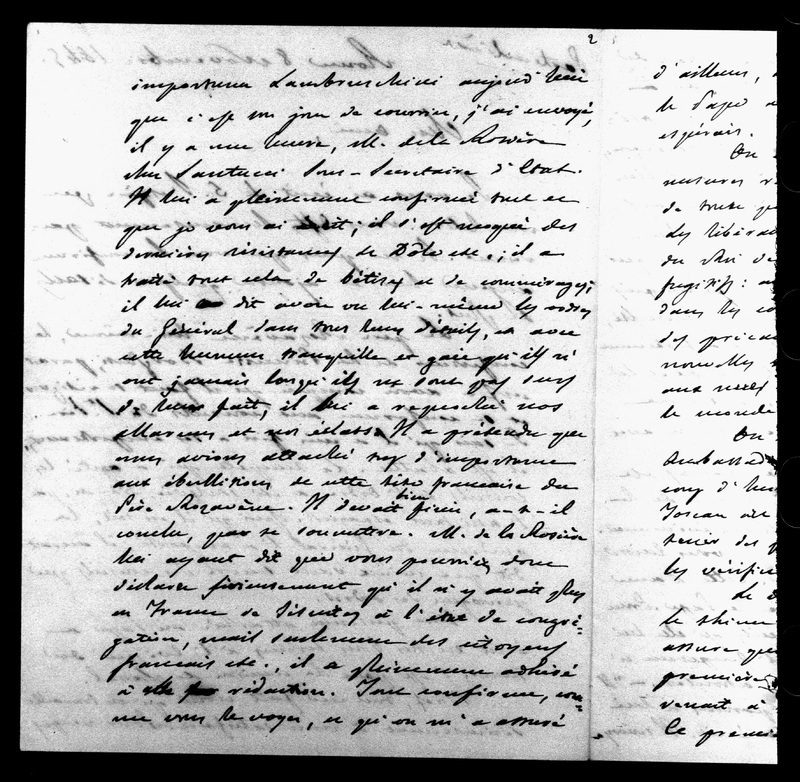 2
importuner Lambruschini aujourd'hui
que c'est son jour de courrier, j'ai envoyé,
il y a une heure, M. de la Rosière
chez Santucci Sous-Secrétaire d'Etat.
Il lui a pleinement confirmé tout ce
que je vous ai écrit; il s'est moqué des
dernières résistances de Dôle etc.; il a
traité tout cela de bêtises et de commérages;
il lui dit avoir vu lui-même les ordres
du Général dans tous leurs détails, et avec
cette humeur tranquille et gaie qu'ils n'
ont jamais lorsqu'ils ne sont pas surs
de leur fait, il lui a reproché nos
allarmes et nos éclats. Il a prétendu que
nous avions attaché trop d'importance
aux ébullitions de cette tête française du
Père Rozavène. Il devait bien finir, a-t-il
conclu, par se soumettre. M. de la Rosière
lui ayant dit que vous pourriez donc
déclarer sérieusement qu'il n'y avait plus
en France de Jésuites à l'état de congré-
gation, mais seulement des citoyens
français etc., il a pleinement adhéré
à rédaction. Tout confirme, com-
me vous le voyez, ce qu'on m'a assuré
d'ailleurs,
le Pape
espérais.
On
mesures
de toute
des libéra
du
fugitifs:
dans les
des
nouvelles
aux
le monde
On
Ambassad
coup d'
Toscan
tenir des
les vérifi
de
le
assure que
première
venait à
Ce premie